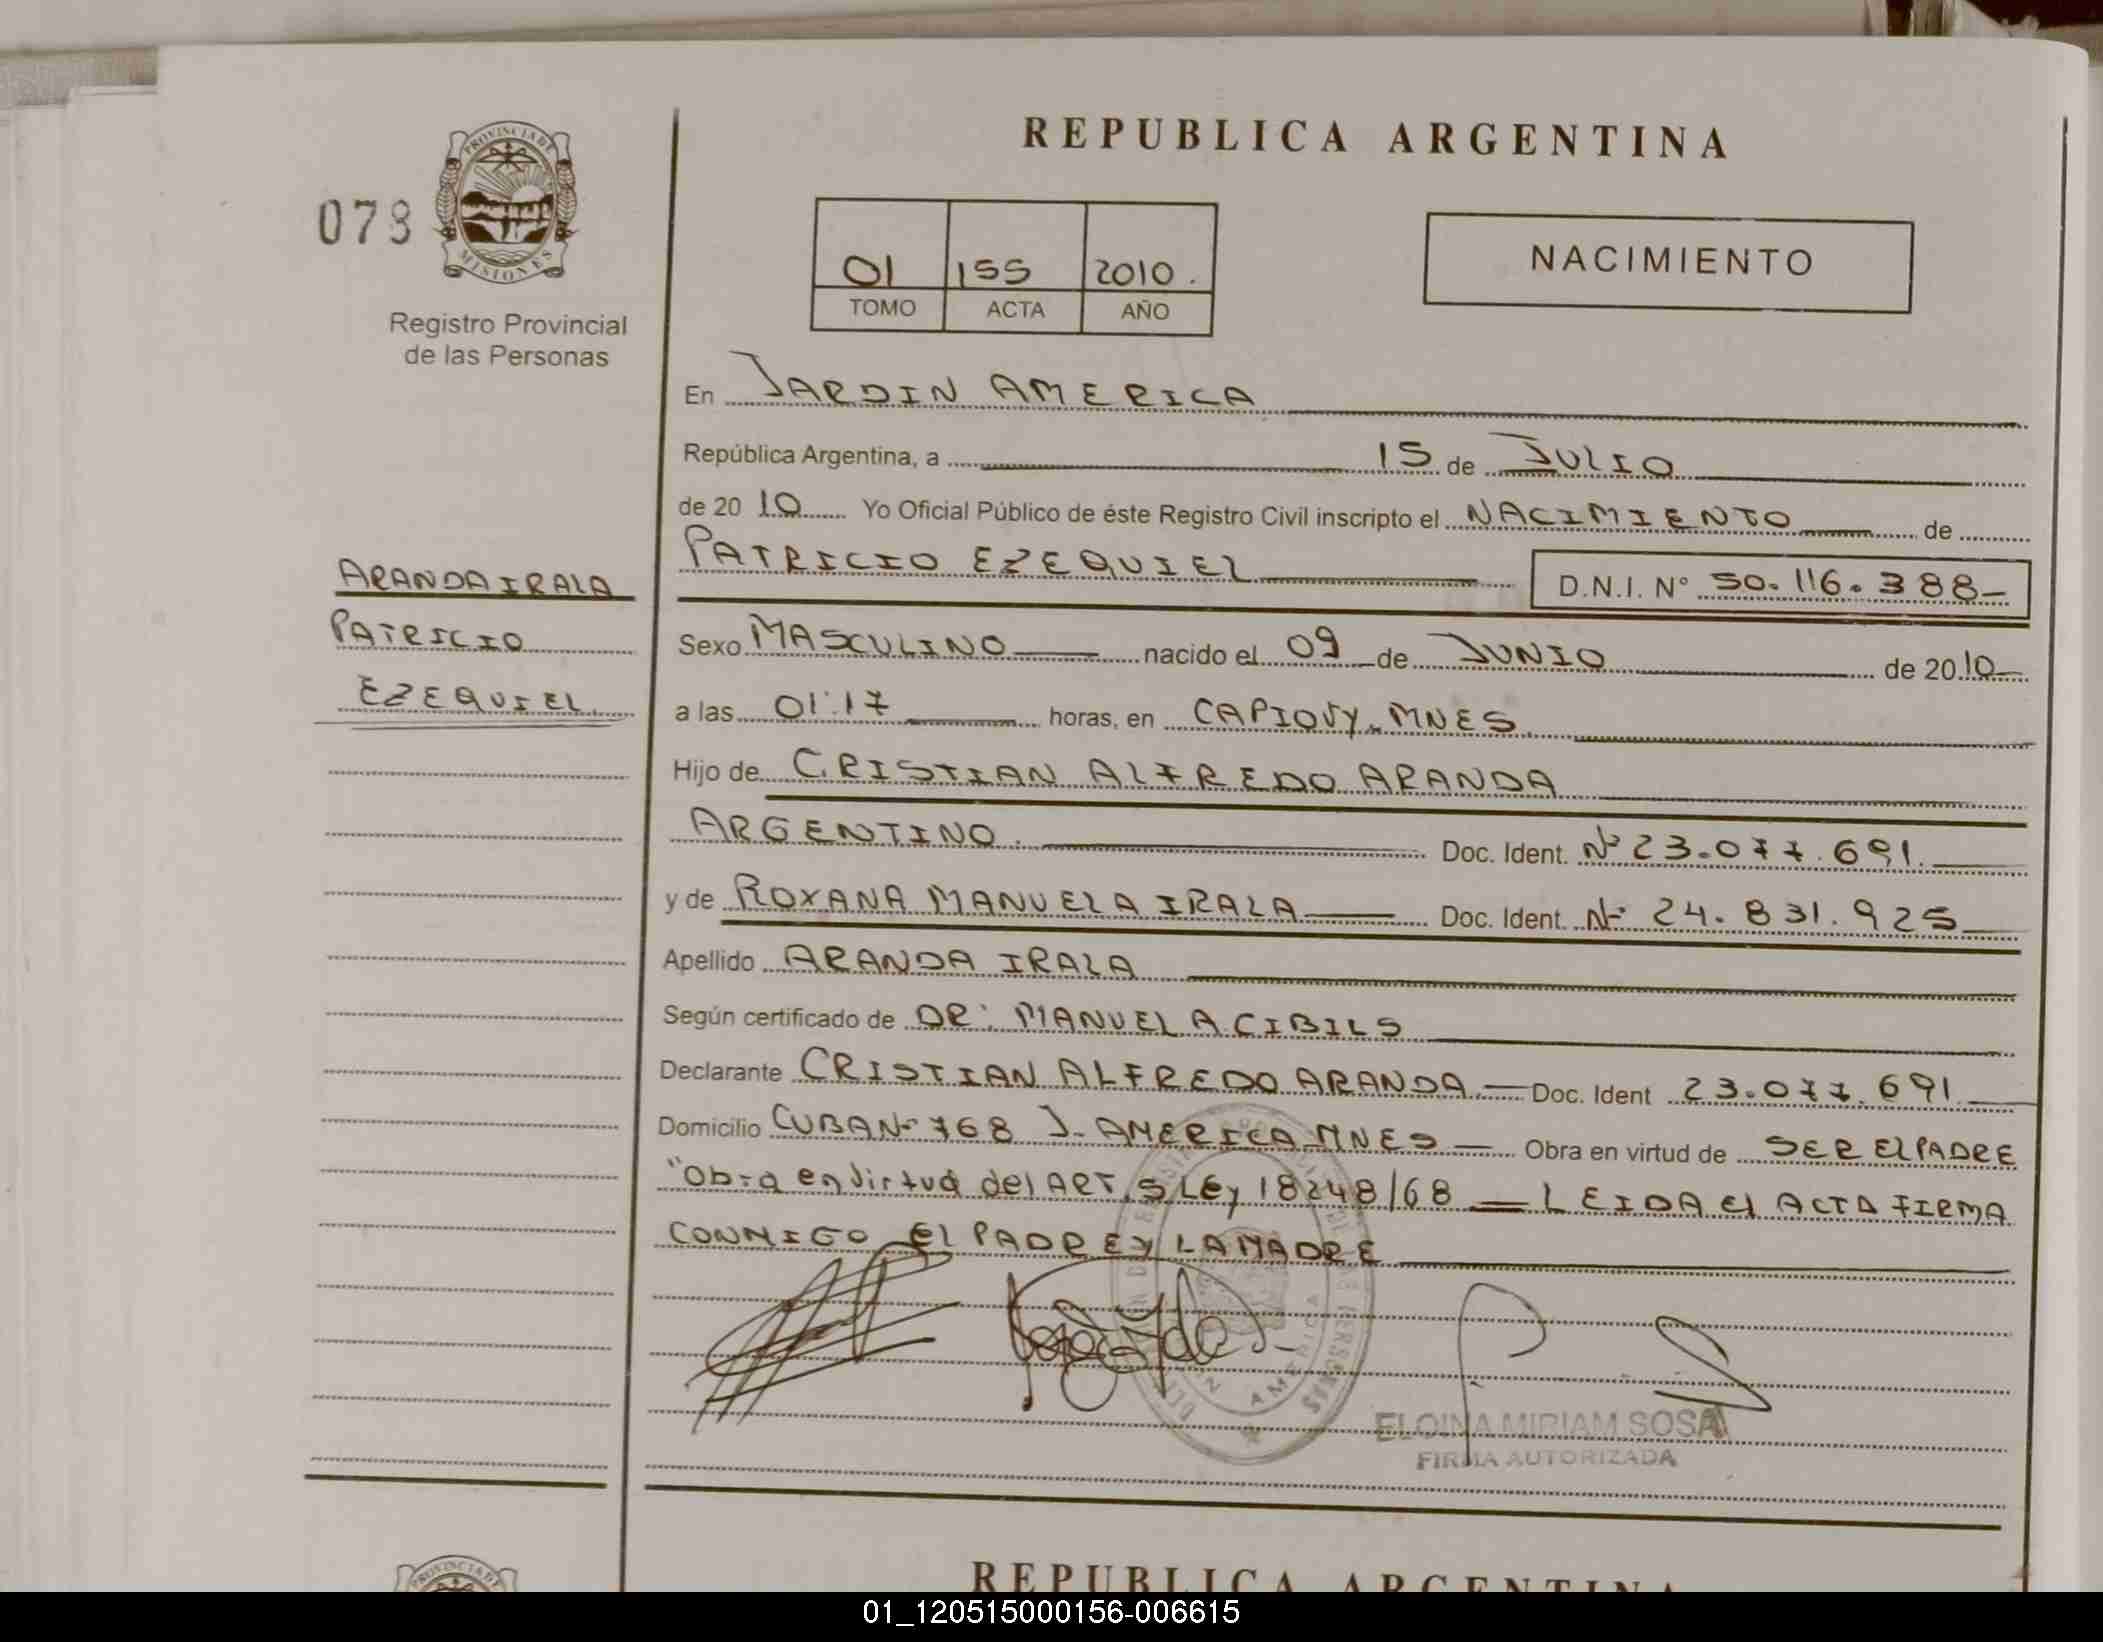 REPUBLICA ARGENTINA
073
PROVINCIA DE MISIONES
Registro Provincial
de las Personas
01 155 2010.
TOMO ACTA AÑO
NACIMIENTO
En JARDIN AMERICA
República Argentina, a 15 de JULIO
de 20 10 Yo Oficial Público de éste Registro Civil inscripto el NACIMIENTO de
PATRICIO EZEQUIEL D.N.I. N° 50.116.388-
ARANDA IRALA
PATRICIO
EZEQUIEL
Sexo MASCULINO nacido el 09 de JUNIO de 2010
a las 01:17 horas, en CAPIOVY-MNES
Hijo de CRISTIAN ALFREDO ARANDA
ARGENTINO. Doc. Ident. N° 23.077.691.
y de ROXANA MANUELA IRALA Doc. Ident. N° 24.831.925
Apellido ARANDA IRALA
Según certificado de DR: MANUEL A CIBILS
Declarante CRISTIAN ALFREDO ARANDA Doc. Ident 23.077.691
Domicilio CUBA N° 768 J. AMERICA MNES Obra en virtud de SER EL PADRE
"Obra en virtud del ART. 5 LEy 18248/68 LEIDA El ACTA FIRMA
CONMIGO El PADRE Y LA MADRE
ELOINA MIRIAM SOSA
FIRMA AUTORIZADA
REPUBLICA ARGENTINA
01_120515000156-006615